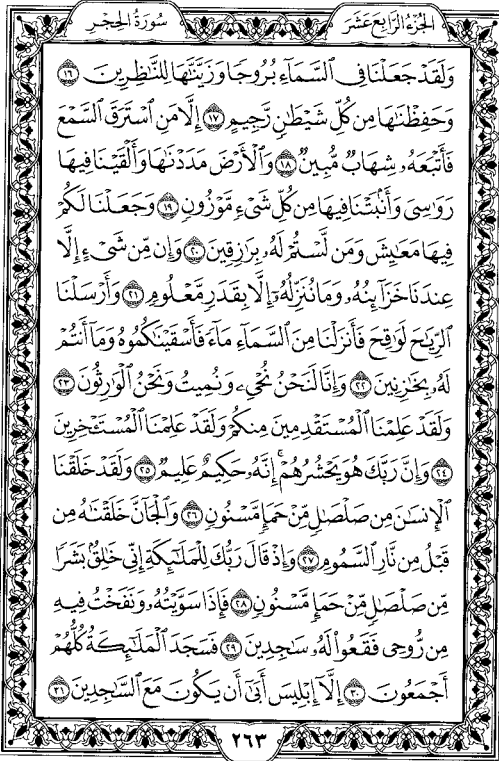 الجزء الرابع عشر
سورة الحجر
وَلَقَدْ جَعَلْنَا فِى ٱلسَّمَآءِ بُرُوجًا وَزَيَّنَّـٰهَا لِلنَّـٰظِرِينَ ١٦
وَحَفِظْنَـٰهَا مِن كُلِّ شَيْطَـٰنٍ رَّجِيمٍ ١٧ إِلَّا مَنِ ٱسْتَرَقَ ٱلسَّمْعَ
فَأَتْبَعَهُۥ شِهَابٌ مُّبِينٌ ١٨ وَٱلْأَرْضَ مَدَدْنَـٰهَا وَأَلْقَيْنَا فِيهَا
رَوَٰسِىَ وَأَنۢبَتْنَا فِيهَا مِن كُلِّ شَىْءٍ مَّوْزُونٍ ١٩ وَجَعَلْنَا لَكُمْ
فِيهَا مَعَـٰيِشَ وَمَن لَّسْتُمْ لَهُۥ بِرَٰزِقِينَ ٢٠ وَإِن مِّن شَىْءٍ إِلَّا
عِندَنَا خَزَآئِنُهُۥ وَمَا نُنَزِّلُهُۥٓ إِلَّا بِقَدَرٍ مَّعْلُومٍ ٢١ وَأَرْسَلْنَا
ٱلرِّيَـٰحَ لَوَٰقِحَ فَأَنزَلْنَا مِنَ ٱلسَّمَآءِ مَآءً فَأَسْقَيْنَـٰكُمُوهُ وَمَآ أَنتُمْ
لَهُۥ بِخَـٰزِنِينَ ٢٢ وَإِنَّا لَنَحْنُ نُحْىِۦ وَنُمِيتُ وَنَحْنُ ٱلْوَٰرِثُونَ ٢٣
وَلَقَدْ عَلِمْنَا ٱلْمُسْتَقْدِمِينَ مِنكُمْ وَلَقَدْ عَلِمْنَا ٱلْمُسْتَـْٔخِرِينَ
٢٤ وَإِنَّ رَبَّكَ هُوَ يَحْشُرُهُمْ ۚ إِنَّهُۥ حَكِيمٌ عَلِيمٌ ٢٥ وَلَقَدْ خَلَقْنَا
ٱلْإِنسَـٰنَ مِن صَلْصَـٰلٍ مِّنْ حَمَإٍ مَّسْنُونٍ ٢٦ وَٱلْجَآنَّ خَلَقْنَـٰهُ مِن
قَبْلُ مِن نَّارِ ٱلسَّمُومِ ٢٧ وَإِذْ قَالَ رَبُّكَ لِلْمَلَـٰٓئِكَةِ إِنِّى خَـٰلِقٌۢ بَشَرًا
مِّن صَلْصَـٰلٍ مِّنْ حَمَإٍ مَّسْنُونٍ ٢٨ فَإِذَا سَوَّيْتُهُۥ وَنَفَخْتُ فِيهِ
مِن رُّوحِى فَقَعُوا۟ لَهُۥ سَـٰجِدِينَ ٢٩ فَسَجَدَ ٱلْمَلَـٰٓئِكَةُ كُلُّهُمْ
أَجْمَعُونَ ٣٠ إِلَّآ إِبْلِيسَ أَبَىٰٓ أَن يَكُونَ مَعَ ٱلسَّـٰجِدِينَ ٣١
٢٦٣